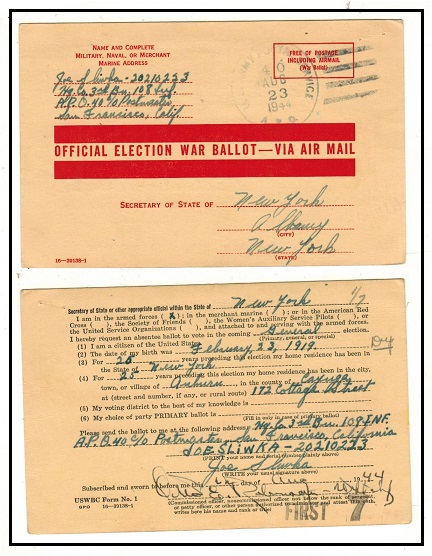 NAME AND COMPLETE
MILITARY, NAVAL, OR MERCHANT
MARINE ADDRESS
Joe Sliwka - 20210223
Hq. Co. 3rd Bn. 108 Inf.
A.P.O. 40 c/o Postmaster
San Francisco, Calif.
FREE OF POSTAGE
INCLUDING AIRMAIL
(War Ballot)
AUG
23
1944
OFFICIAL ELECTION WAR BALLOT—VIA AIR MAIL
SECRETARY OF STATE OF New York
Albany
(CITY)
New York
(STATE)
16—39138-1
Secretary of State or other appropriate official within the State of New York
I am in the armed forces (X); in the merchant marine ( ); or in the American Red
Cross ( ), the Society of Friends ( ), the Women's Auxiliary Service Pilots ( ), or
United Service Organizations ( ), and attached to and serving with the armed forces.
I hereby request an absentee ballot to vote in the coming General election.
(Primary, general, or special)
(1) I am a citizen of the United States.
(2) The date of my birth was February 23, 1919.
(3) For 25 years preceding this election my home residence has been in
the State of New York
(4) For 25 years preceding this election my home residence has been in the city,
town, or village of Auburn, in the county of Cayuga
at (street and number, if any, or rural route) 172 Cottage Street
(5) My voting district to the best of my knowledge is
(6) My choice of party PRIMARY ballot is
(Fill in only in case of primary ballot)
Please send the ballot to me at the following address: Hq. Co. 3rd Bn. 108 INF.
A.P.O. 40 c/o Postmaster, San Francisco, California
JOE SLIWKA - 20210223
(PRINT your name and serial number plainly above)
Joe Sliwka
(WRITE your usual signature above)
Subscribed and sworn to before me this day of Aug 1944
(Commissioned officer, noncommissioned officer not below the rank of sergeant,
or petty officer, or other person authorized to administer and attest oaths,
writes here his name and rank or title)
USWBC Form No. 1
GPO 16—39138-1
FIRST 7